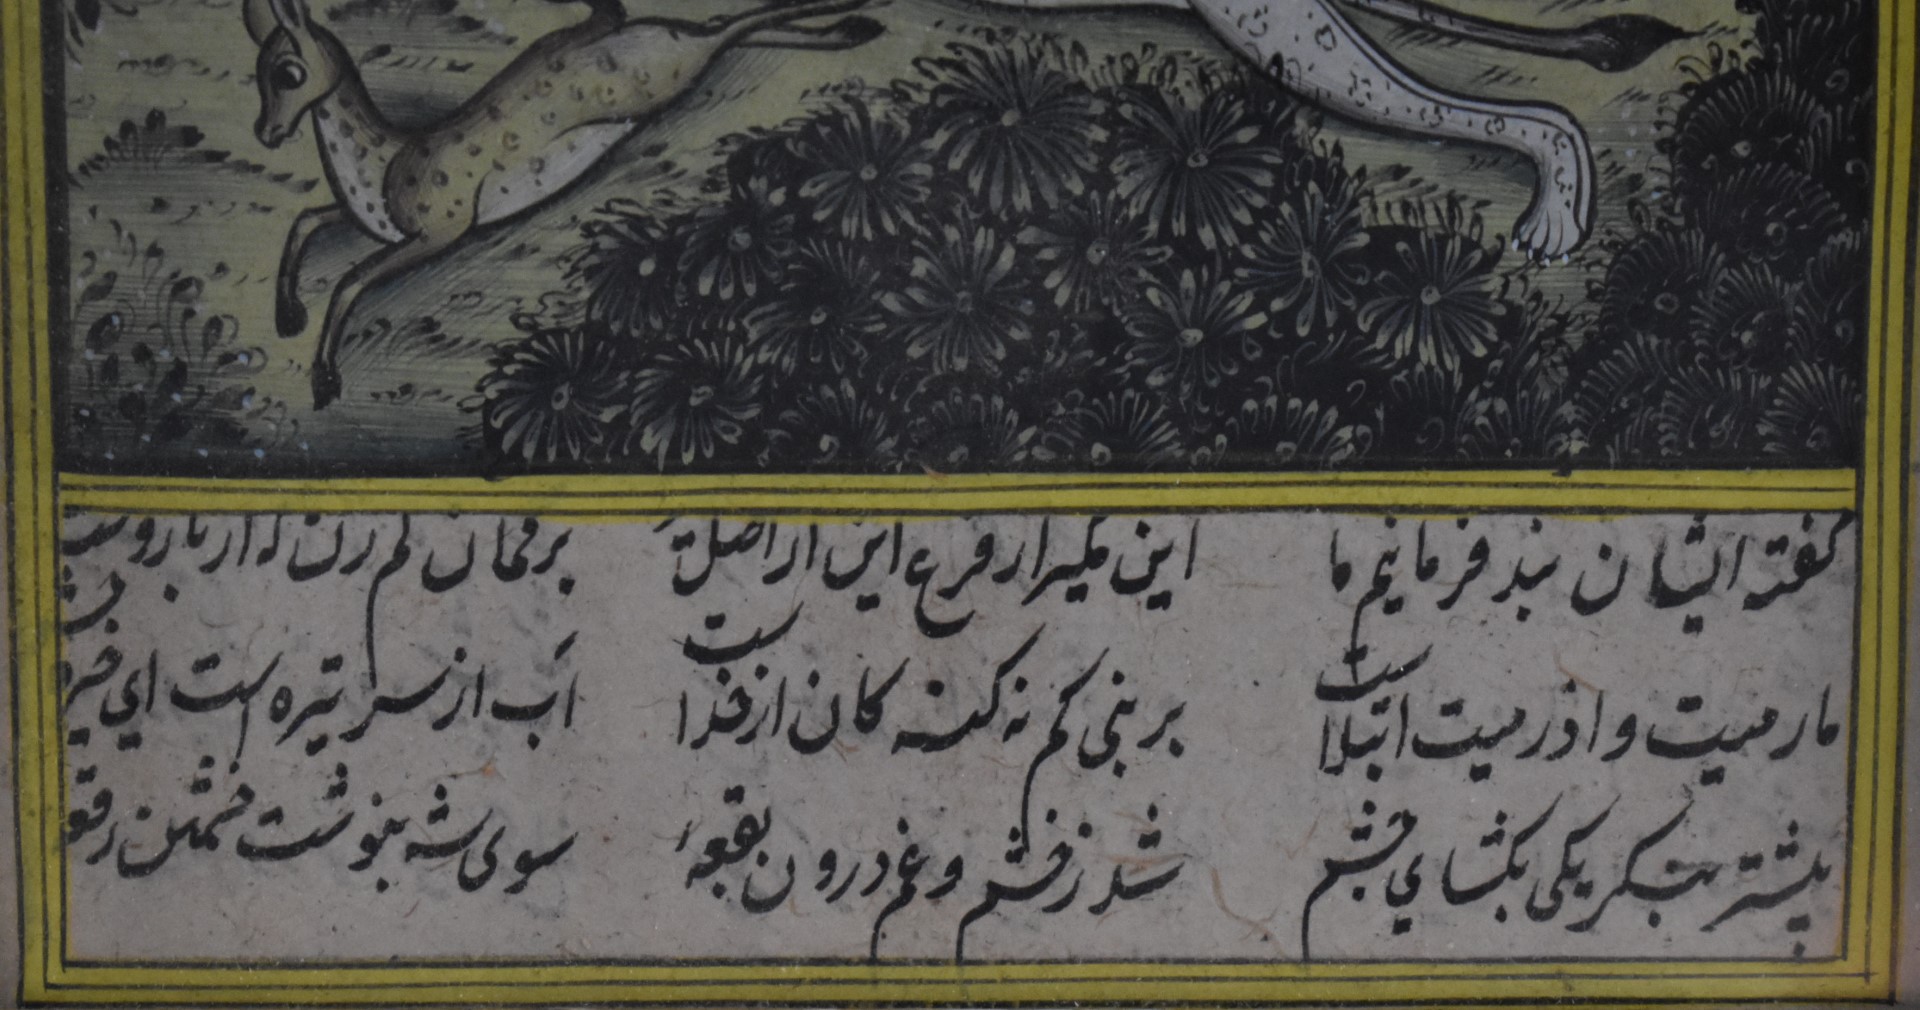 گفته ایشان بند فرمانیم ما این مگیر از فرع این از اصل گیر بر کمان کم زن که از بازوست
ما رمیت و اذ رمیت ابتلاست بر نبی کم نه گنه کان از خداست آب از سر تیره است ای خیره
پیشتر بنگر یکی بگشای چشم شد ز خشم و غم درون بقعهٔ سوی شه بنوشت خشمین رقعهٔ